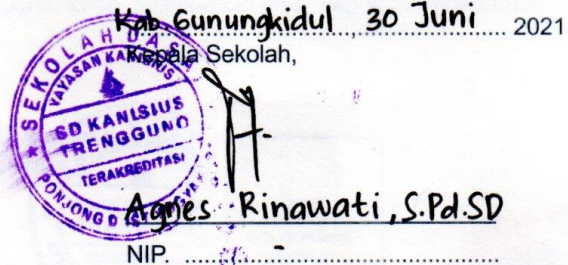 Kab. Gunungkidul, 30 Juni 2021
Kepala Sekolah,
SEKOLAH DASAR
YAYASAN KANISIUS
SD KANISIUS
TRENGGUNO
TERAKREDITASI
PONJONG
Agnes Rinawati, S.Pd.SD
NIP. -